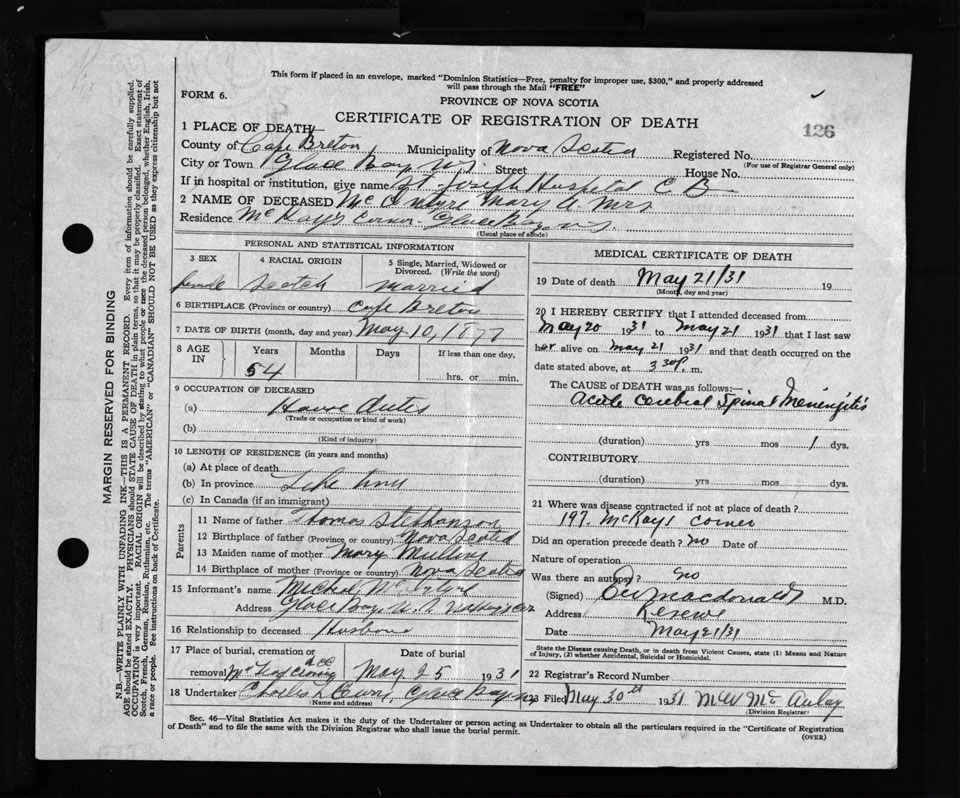 This form if placed in an envelope, marked "Dominion Statistics—Free, penalty for improper use, $300," and properly addressed
will pass through the Mail "FREE"
FORM 6.
PROVINCE OF NOVA SCOTIA
CERTIFICATE OF REGISTRATION OF DEATH
126
1 PLACE OF DEATH
County of Cape Breton Municipality of Nova Scotia Registered No.
(For use of Registrar General only)
City or Town Glace Bay N.S. Street House No.
If in hospital or institution, give name St Joseph Hospital C B
2 NAME OF DECEASED Mc Intyre Mary A. Mrs
Residence McKay's Corner Glace Bay N.S.
(Usual place of abode)
PERSONAL AND STATISTICAL INFORMATION
3 SEX female
4 RACIAL ORIGIN Scotch
5 Single, Married, Widowed or
Divorced. (Write the word)
married
6 BIRTHPLACE (Province or country) Cape Breton
7 DATE OF BIRTH (month, day and year) May 10, 1877
8 AGE IN Years Months Days If less than one day,
54 hrs. or min.
9 OCCUPATION OF DECEASED
(a) House Duties
(Trade or occupation or kind of work)
(b)
(Kind of industry)
10 LENGTH OF RESIDENCE (in years and months)
(a) At place of death
(b) In province Life time
(c) In Canada (if an immigrant)
Parents
11 Name of father Thomas Stephanson
12 Birthplace of father (Province or country) Nova Scotia
13 Maiden name of mother Mary Mullins
14 Birthplace of mother (Province or country) Nova Scotia
15 Informant's name Michel McIntyre
Address Glace Bay N.S. McKay's Cor
16 Relationship to deceased Husband
17 Place of burial, cremation or
removal
Date of burial
May 25 1931
18 Undertaker Charles L Curry Glace Bay N.S.
(Name and address)
MEDICAL CERTIFICATE OF DEATH
19 Date of death May 21/31 19
(Month, day and year)
20 I HEREBY CERTIFY that I attended deceased from
May 20 1931 to May 21 1931 that I last saw
her alive on May 21 1931 and that death occurred on the
date stated above, at 3 30 p. m.
The CAUSE of DEATH was as follows:—
Acute Cerebral Spinal Meningitis
(duration) yrs mos 1 dys.
CONTRIBUTORY
(duration) yrs mos dys.
21 Where was disease contracted if not at place of death?
197. McKays Corner
Did an operation precede death? no Date of
Nature of operation
Was there an autopsy? no
(Signed) Macdonald M.D.
Address Reserve
Date May 21/31
State the Disease causing Death, or in death from Violent Causes, state (1) Means and Nature
of Injury, (2) whether Accidental, Suicidal or Homicidal.
22 Registrars Record Number
23 Filed May 30th 1931 McAulay
(Division Registrar)
Sec. 46—Vital Statistics Act makes it the duty of the Undertaker or person acting as Undertaker to obtain all the particulars required in the "Certificate of Registration
of Death" and to file the same with the Division Registrar who shall issue the burial permit.
(OVER)
MARGIN RESERVED FOR BINDING
N.B.—WRITE PLAINLY WITH UNFADING INK—THIS IS A PERMANENT RECORD. Every item of information should be carefully supplied.
AGE should be stated EXACTLY. PHYSICIANS should STATE CAUSE OF DEATH in plain terms, so that it may be properly classified. Exact statement of
OCCUPATION is very important. RACIAL ORIGIN will be described by stating to what people or race the deceased person belonged, whether English, Irish,
Scotch, French, German, Russian, Ruthenian, etc. The terms "AMERICAN" or "CANADIAN" SHOULD NOT BE USED as they express citizenship but not
a race or people. See instructions on back of Certificate.